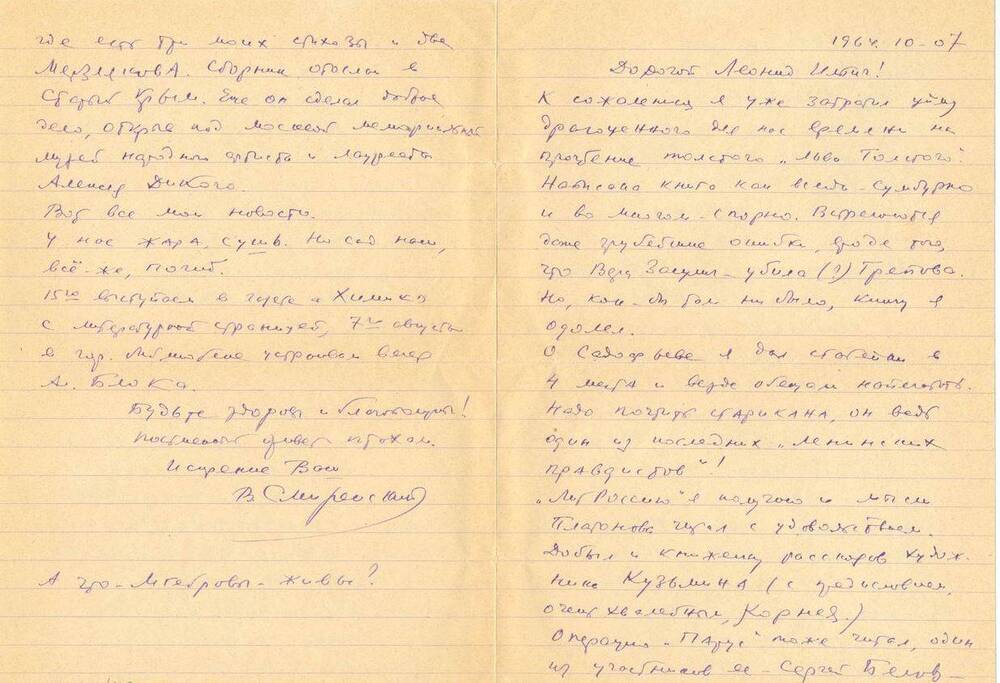 1964. 10-07
Дорогой Леонид Ильич!
К сожалению я уже затратил уйму
драгоценного для нас времени на
прочтение толстого „Льва Толстого“.
Написана книга как всегда - сумбурно
и во многом - спорно. Встречаются
даже грубейшие ошибки, вроде того,
что Вера Засулич - убила (?) Трепова.
Но, как-бы там ни было, книгу я
одолел.
О Садофьеве я дал статейки в
4 места и везде обещали напечатать.
Надо почтить старикана, он ведь
один из последних „ленинских
правдистов“!
„ЛитРоссию“ я получаю и мысли
Платонова читал с удовольствием.
Добыл и книжечку рассказов худож-
ника Кузьмина (с предисловием,
очень хвалебным, Корнея.)
Операцию „Парус“ тоже читал, один
из участников ее - Сергей Белов -
где есть три моих стиха и два
Мерзлякова. Сборник отослал в
Старый Крым. Еще он сделал доброе
дело, открыв под Москвой мемориальный
музей народного артиста и лауреата
Алексея Дикого.
Вот все мои новости.
У нас жара, сушь. Но сад наш,
всё-же, погиб.
15го выступаем в газете „Химик“
с литературной страницей, 7го августа
в гор. устраиваем вечер
Ал. Блока.
Будьте здоровы и благополучны!
привет птахам.
Искренне Ваш
В. Смиренский
А что - Мгебровы - живы?